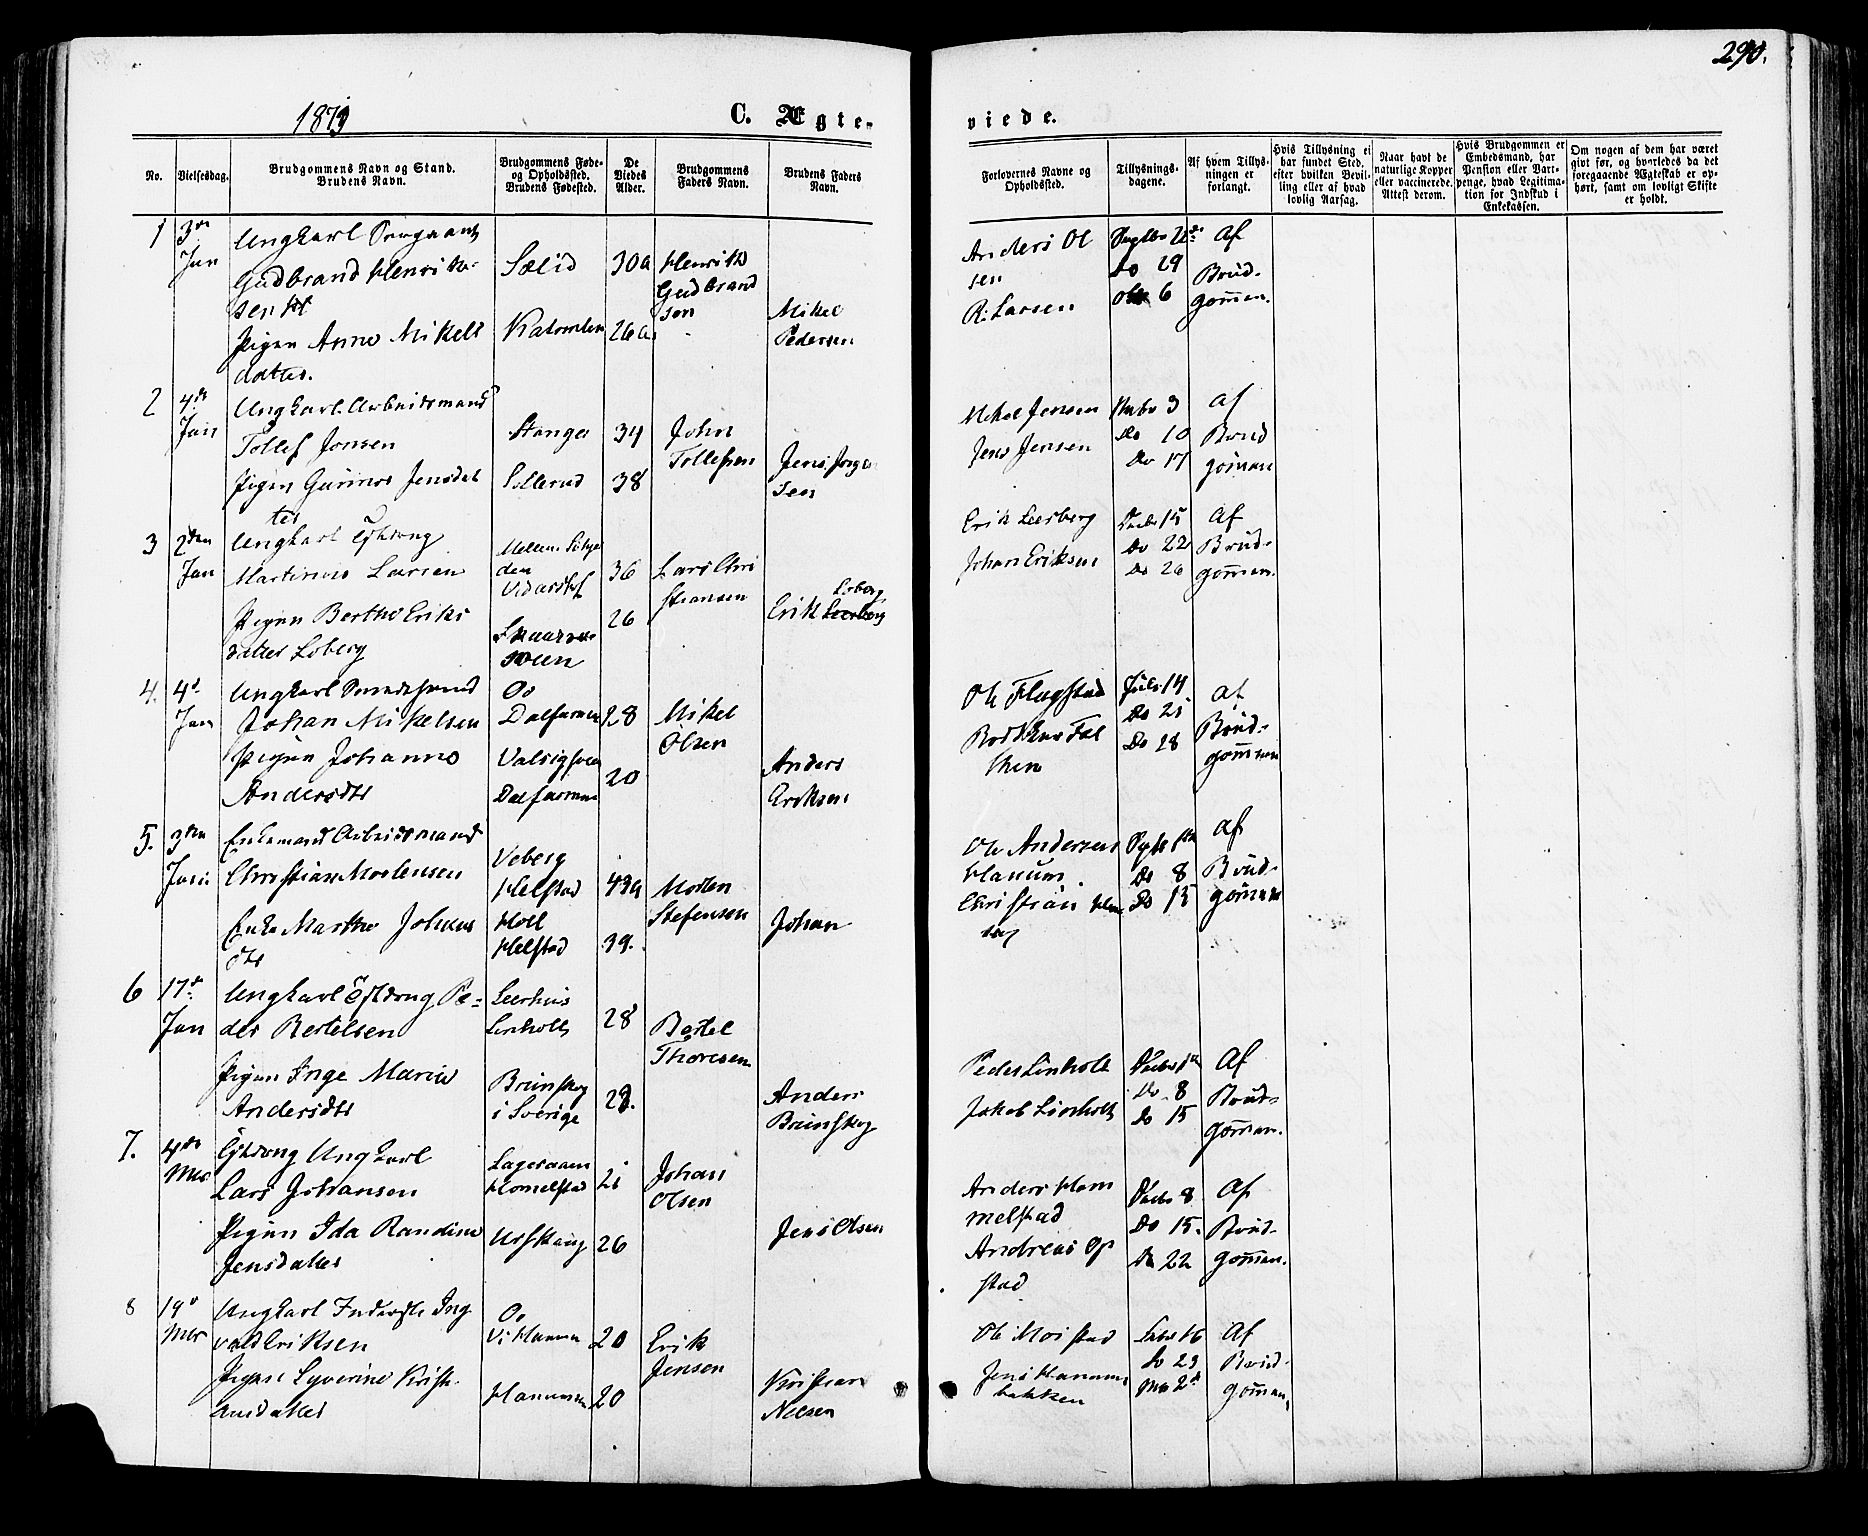 290.
1879
C. Ægte-
viede.
No.
Vielsesdag.
Brudgommens Navn og Stand.
Brudens Navn.
Brudgommens Føde-
og Opholdsted.
Brudens Fødested.
De
Viedes
Alder.
Brudgommens
Faders Navn.
Brudens Faders
Navn.
Forlovernes Navne og
Opholdsted.
Tillysnings-
dagene.
Af hvem Tillys-
ningen er
forlangt.
Hvis Tillysning ei
har fundet Sted,
efter hvilken Bevil-
ling eller af hvad
lovlig Aarsag.
Naar havt de
naturlige Kopper
eller vaccinerede.
Attest derom.
Hvis Brudgommen er
Embedsmand, har
Pension eller Vart-
penge, hvad Legitima-
tion for Indskud i
Enkekassen.
Om nogen af dem har været
givt før, og hvorledes da det
foregaaende Ægteskab er op-
hørt, samt om lovligt Skifte
er holdt.
1
3die
Jan
Ungkarl Sergeant
Gudbrand Henrik-
sen
Pigen Anne Mikels
datter.
Sælid
30a
26a
Henrik
Gudbrand
sen
Mikel
Pedersen
Anders Ol
sen
R. Larsen
Do 29
6
Af
Brud-
gommen.
2
4de
Jan
Ungkarl Arbeidsmand
Tollef Jonsen
Pigen Gunnor Jensdat
ter
Stange
Sollerud
34
38
John
Tollefsen
Jens Jørgen
sen
Mikel Jensen
Jens Jensen
3
Do 10
Do 17
Af
Brud
gommen
3
2den
Jan
Ungkarl
Martinus Larsen
Pigen Berthe Eriks
datter Loberg
den
Vidarshof
36
26
Lars Chri
stiansen
Loberg
Erik
Erik
Johan Eriksen
15
Do 22
Do 26
Af
Brud-
gommen.
4.
4de
Jan
Ungkarl
Johan Mikelsen
Pigen Johanne
Andersdtr
Dalfarmen
Dalfarmen
28
20
Mikel
Olsen
Anders
Eriksen
Ole Flagstad
Juli 14
Do 21
Do 28
af
Brud-
gommen
5.
3den
Jan
Enkemand Arbeidsmand
Christian Mortensen
Enke Marthe Johans
dtr
Veberg
Helstad
Holl
Helstad
43a
39.
Morten
Stefensen
Johan
Ole Andersen
Hanum.
Christian
Do 8
Do 15
af
Brud-
gommen
6
17de
Jan
Ungkarl Pe-
der Bertelsen
Pigen Inge Marie
Andersdtr
Linholt
Brunskog
i Sverige
28
Bertel
Thoresen
Anders
Brunskog
Peder Linholt
Jakob Linholt
Do 8
Do 15
Af
Brud-
gommen.
7.
4de
Mar
Ungkarl
Lars Johansen
Pigen Ida Randine
Jensdatter
Homelstad
Urskoug
21
26
Johan
Olsen
Jens Olsen
Anders Hom
melstad
Andreas Op
stad
8
Do 15.
Do 22
Af
Brud-
gommen.
8
19de
Mar
Ungkarl Inderste Ing
vald Eriksen
Pigen Syverine Kristi
ansdatter
Hanum
20
20
Erik
Jensen
Kristian
Nilsen
Ole Moistad
Jens Hanum
bakken
16
Do 23
Af
Brud-
gommen,